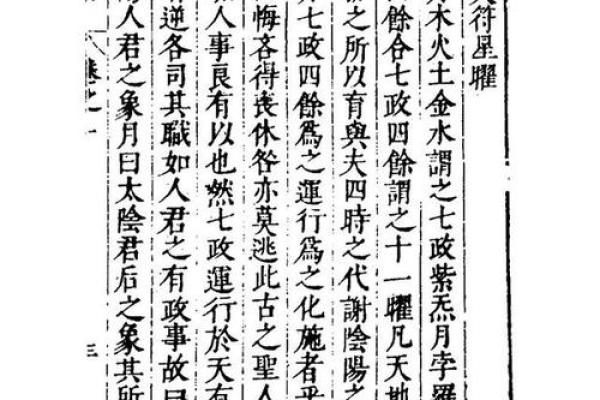 符星曜
木火土金水謂之七政紫炁月孛羅
餘合七政四餘謂之十一曜凡天地
之所以育與夫四時之代謝陰陽之
七政四餘為之運行為之化施者乎
悔吝得喪休咎亦莫逃此古之聖人
人事良有以也然七政運行於天有
逆各司其職如人君之有政事故曰
人君之象月曰太陰君后之象其所
卷之一
三